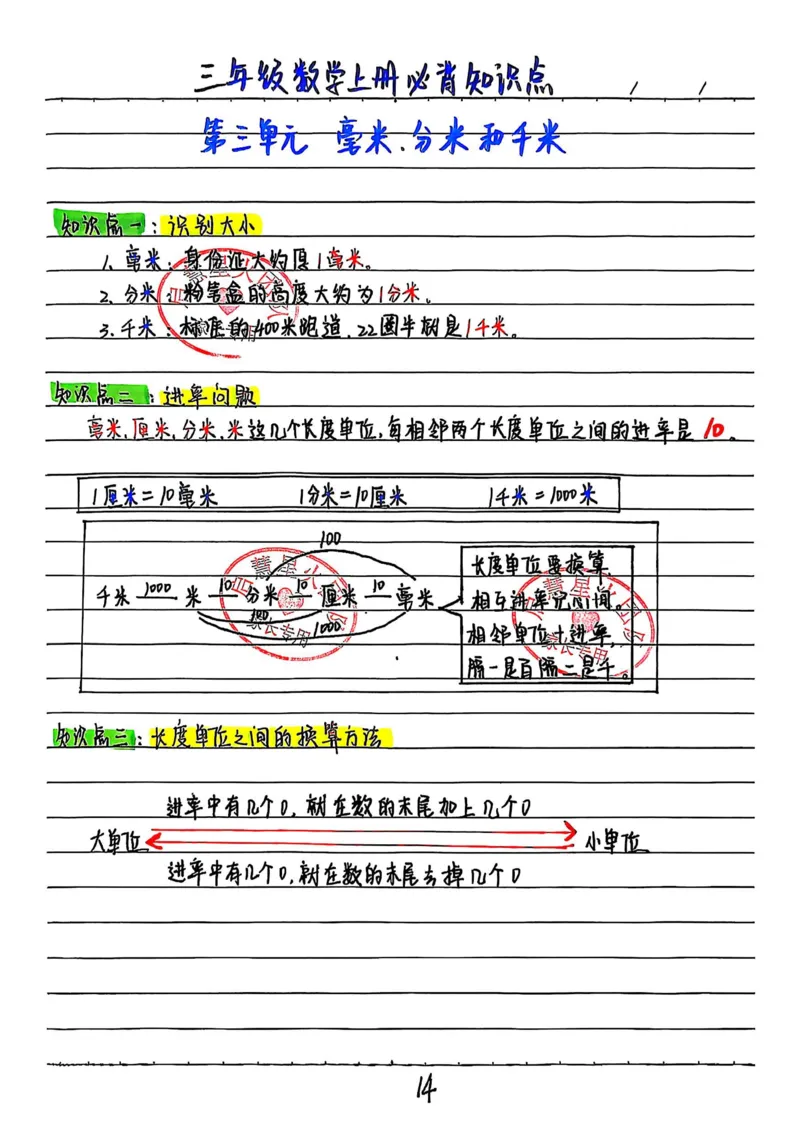 三年级数学上册必背知识点
第三单元 毫米、分米和千米
知识点一：识别大小
1、毫米：身份证大约厚1毫米。
2、分米：粉笔盒的高度大约为1分米。
3、千米：标准的400米跑道，22圈半就是1千米。
知识点二：进率问题
毫米、厘米、分米、米这几个长度单位，每相邻两个长度单位之间的进率是10。
1厘米=10毫米 1分米=10厘米 1千米=1000米
100
千米 1000 米 10 分米 10 厘米 10 毫米
100
1000
长度单位要换算，
相互进率记心间。
相邻单位十进率，
隔一是百隔二是千。
知识点三：长度单位之间的换算方法
进率中有几个0，就在数的末尾加上几个0
大单位 小单位
进率中有几个0，就在数的末尾去掉几个0
14